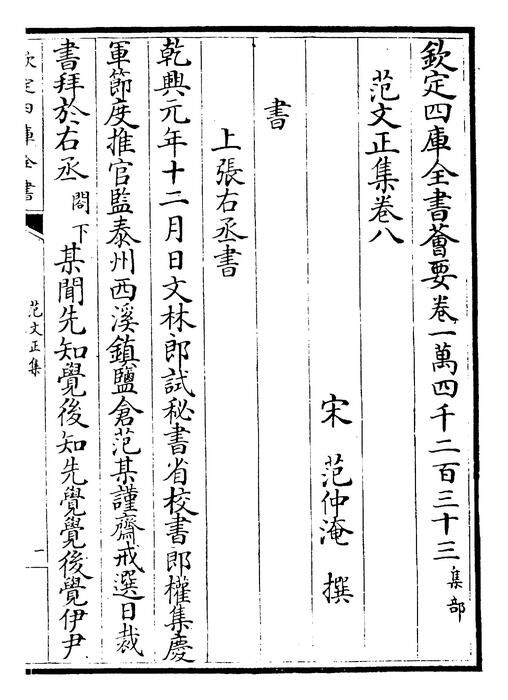 欽定四庫全書薈要卷一萬四千二百三十三 集部
范文正集卷八
宋 范仲淹 撰
書
上張右丞書
乾興元年十二月日文林郎試秘書省校書郎權集慶
軍節度推官監泰州西溪鎮鹽倉范某謹齋戒選日裁
書拜於右丞閣下某聞先知覺後知先覺覺後覺伊尹
欽定四庫全書
范文正集
一